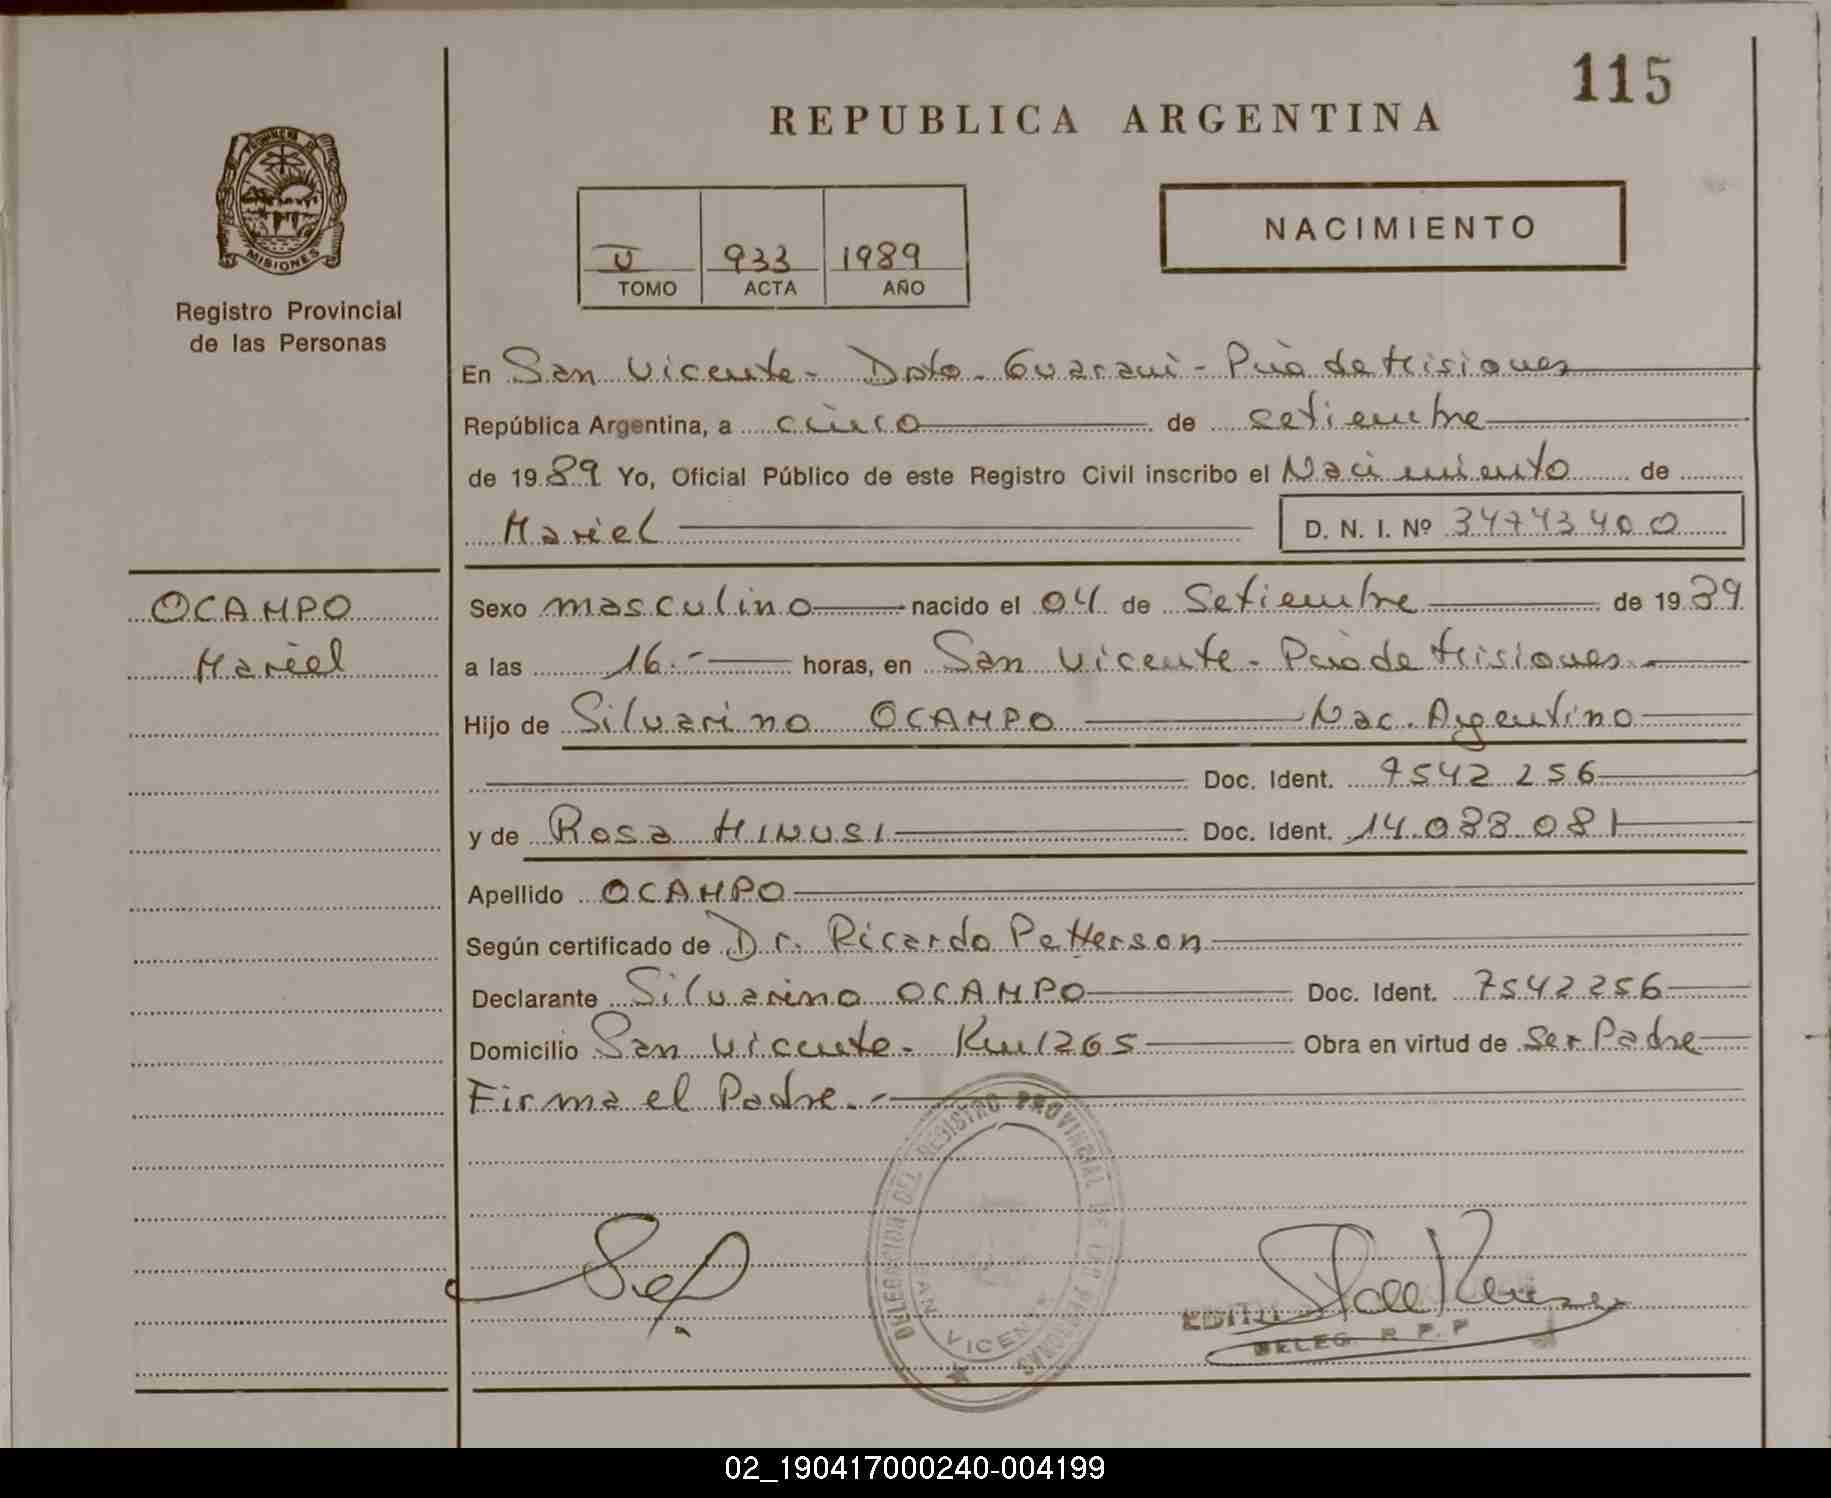 115
REPUBLICA ARGENTINA
MISIONES
Registro Provincial
de las Personas
V 933 1989
TOMO ACTA AÑO
NACIMIENTO
En San Vicente - Dpto. Guaraní - Pcia de Misiones
República Argentina, a cinco de setiembre
de 1989 Yo, Oficial Público de este Registro Civil inscribo el Nacimiento de
Mariel D. N. I. Nº 34743400
OCAMPO
Mariel
Sexo masculino nacido el 04 de Setiembre de 1989
a las 16.- horas, en San Vicente - Pcia de Misiones.-
Hijo de Silvarino OCAMPO Nac. Argentino
Doc. Ident. 7542256
y de Rosa MINUSI Doc. Ident. 14.088.081
Apellido OCAMPO
Según certificado de Dr. Ricardo Petterson
Declarante Silvarino OCAMPO Doc. Ident. 7542256
Domicilio San Vicente - Km 1265 Obra en virtud de Ser Padre
Firma el Padre.-
DELEGACION DEL REGISTRO PROVINCIAL DE LAS PERSONAS
SAN VICENTE
DELEG. R. P. P
02_190417000240-004199